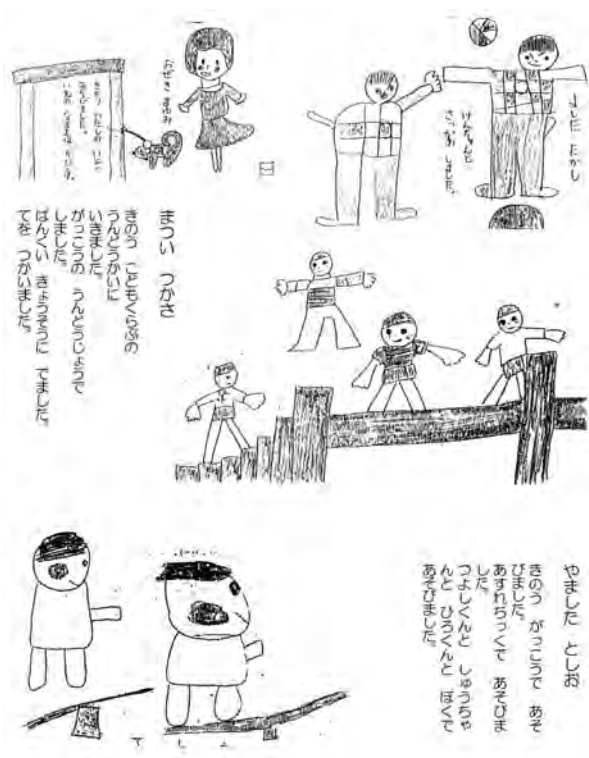 よしだ たかし
けんちゃんと
さっかあ しました。
おぜき まゆみ
きのう
あそびました。
まつい つかさ
きのう こどもくらぶの
うんどうかいに
いきました。
がっこうの うんどうじょうで
しました。
ぱんくい きょうそうに でました。
てを つかいました。
やました としお
きのう がっこうで あそ
びました。
あすれちっくで あそびま
した。
つよしくんと しゅうちゃ
んと ひろくんと ぼくで
あそびました。